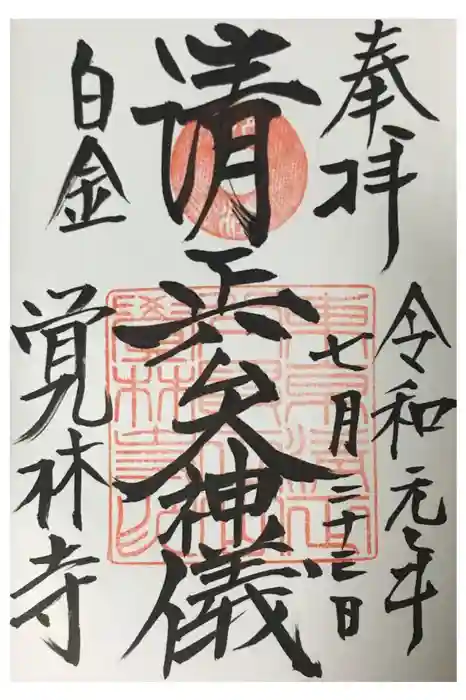 奉拝
令和元年
七月二十七日
清正公大神儀
白金
覚林寺